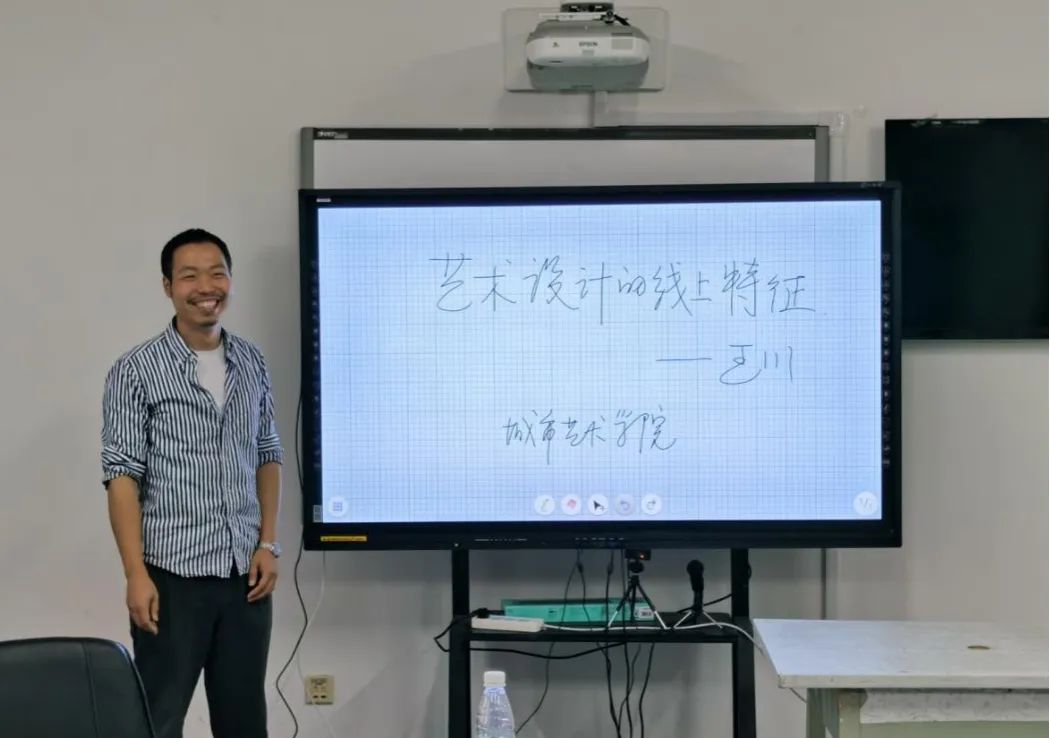 EPSON
艺术设计的线上特征
——王川
城市艺术学院